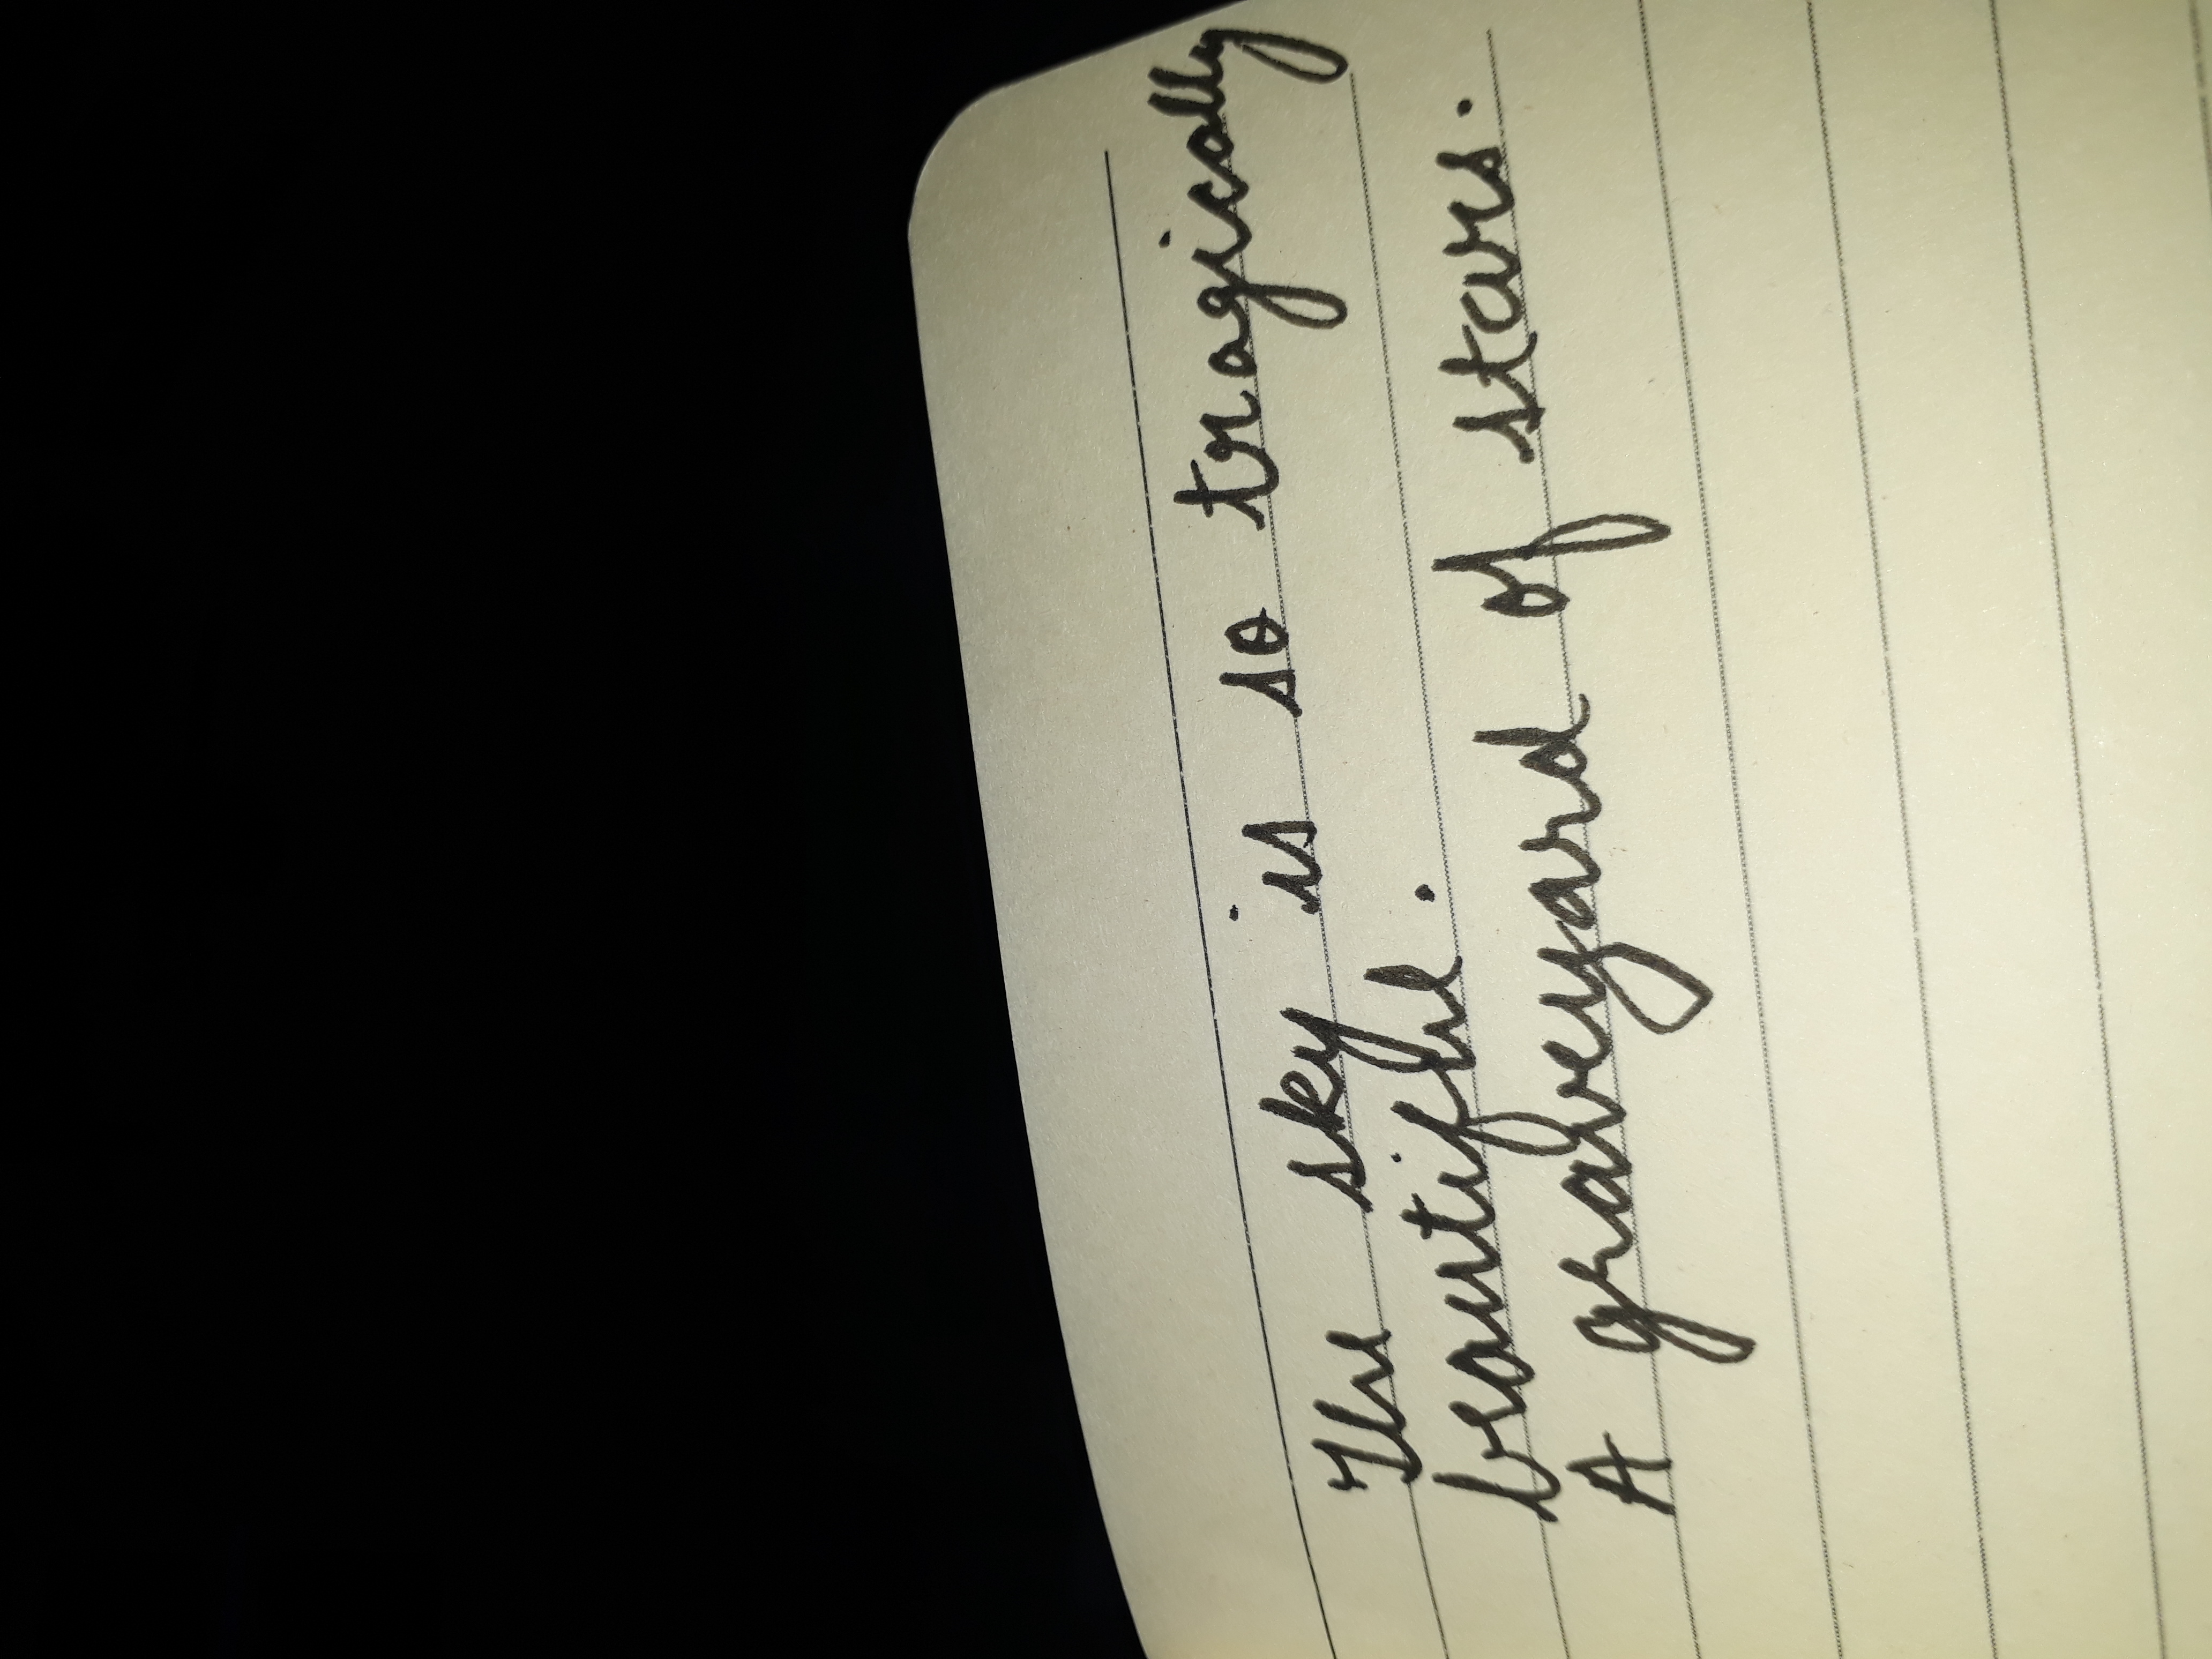 The sky is so tragically
beautiful.
A graveyard of stars.